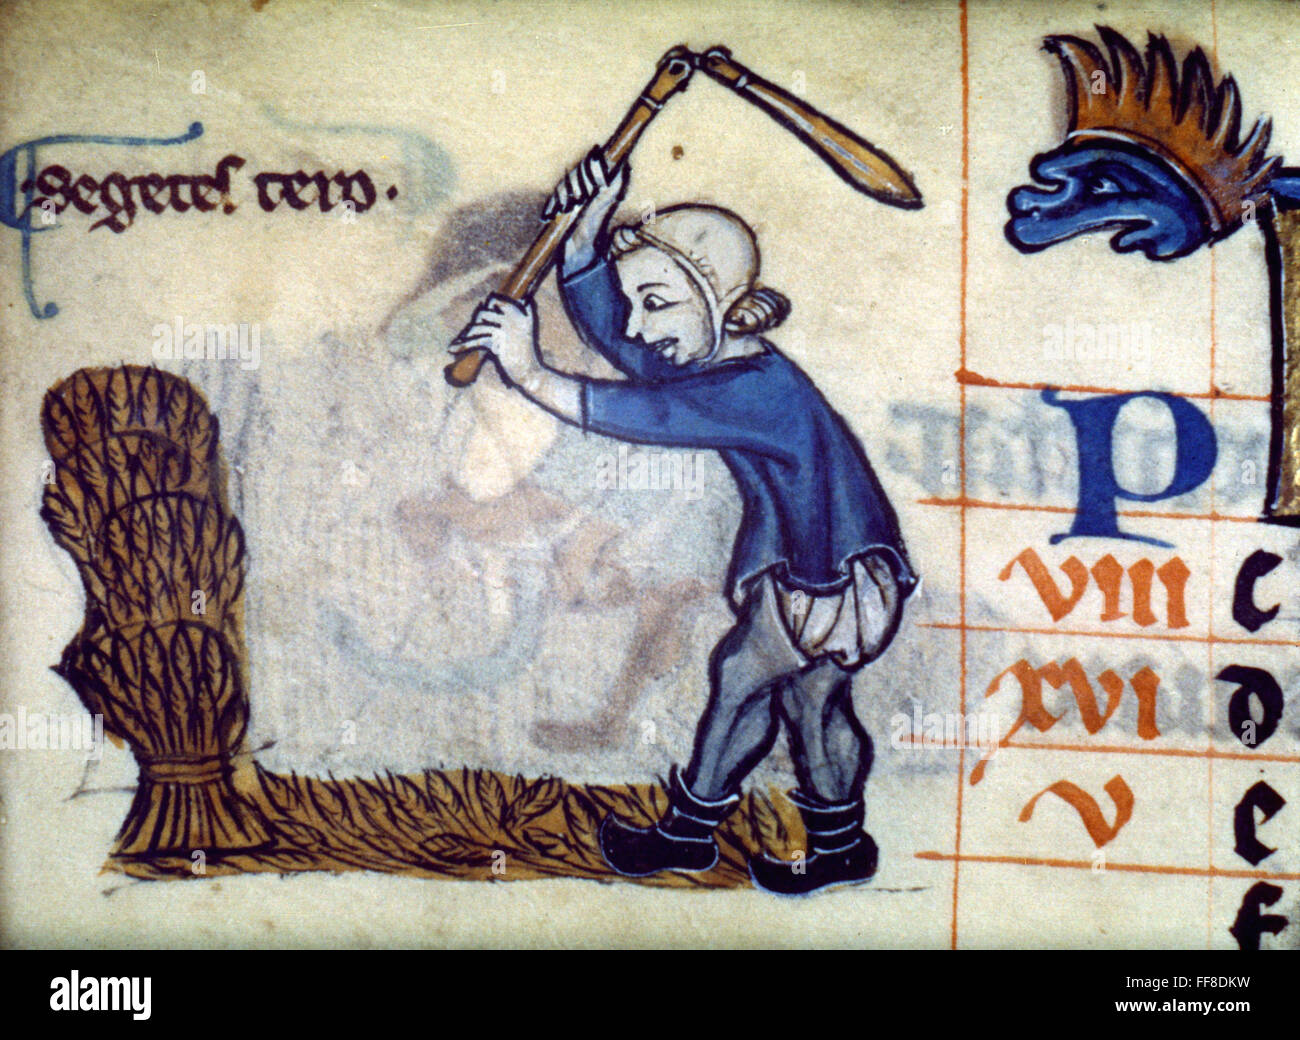 segetes tero.
P
VIII C
XVI D
V E
F
alamy
Image ID: FF8DKW
www.alamy.com